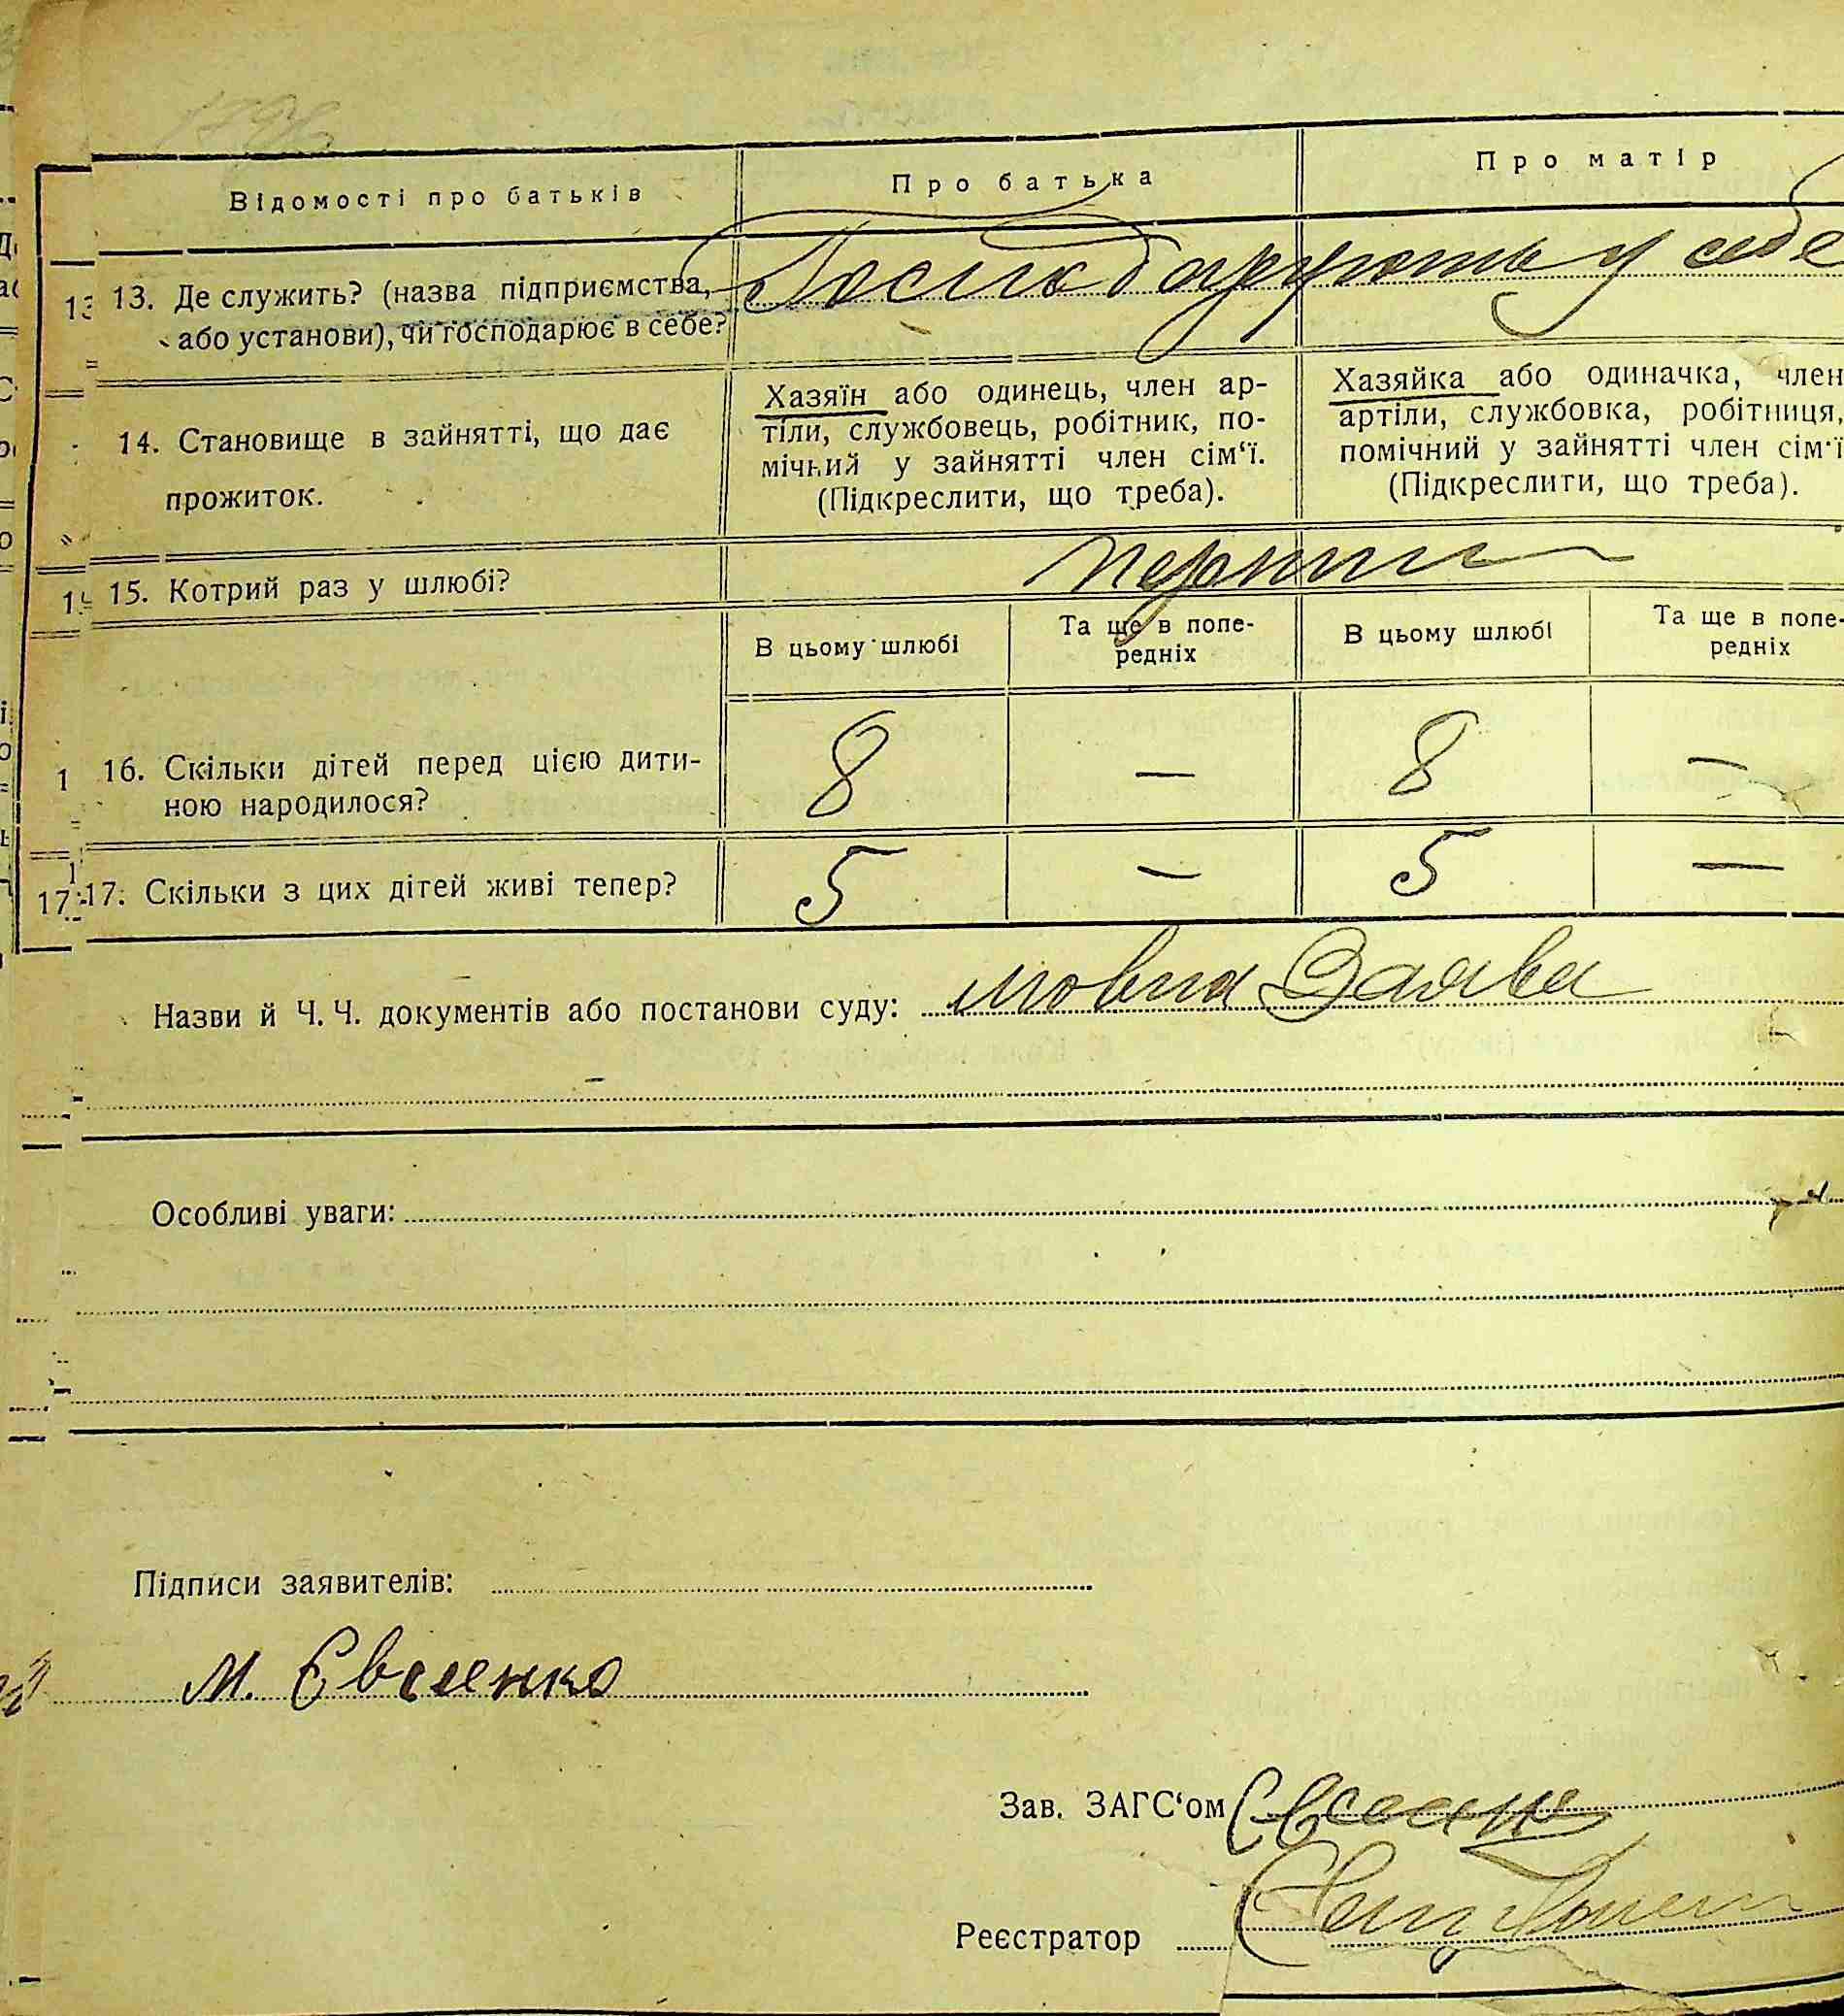 Відомості про батьків
Про батька
Про матір
13. Де служить? (назва підприємства,
або установи), чи господарює в себе?
Господарують у себе
14. Становище в зайнятті, що дає
прожиток.
Хазяїн або одинець, член ар-
тіли, службовець, робітник, по-
мічний у зайнятті член сім‘ї.
(Підкреслити, що треба).
Хазяйка або одиначка, член
артіли, службовка, робітниця,
помічний у зайнятті член сім‘ї
(Підкреслити, що треба).
15. Котрий раз у шлюбі?
перший
В цьому шлюбі
Та ще в попе-
редніх
В цьому шлюбі
Та ще в попе-
редніх
16. Скільки дітей перед цією дити-
ною народилося?
8 — 8 —
17. Скільки з цих дітей живі тепер?
5 — 5 —
Назви й Ч. Ч. документів або постанови суду: мовна Заява
Особливі уваги:
Підписи заявителів:
М. Євсієнко
Зав. ЗАГС‘ом
Реєстратор